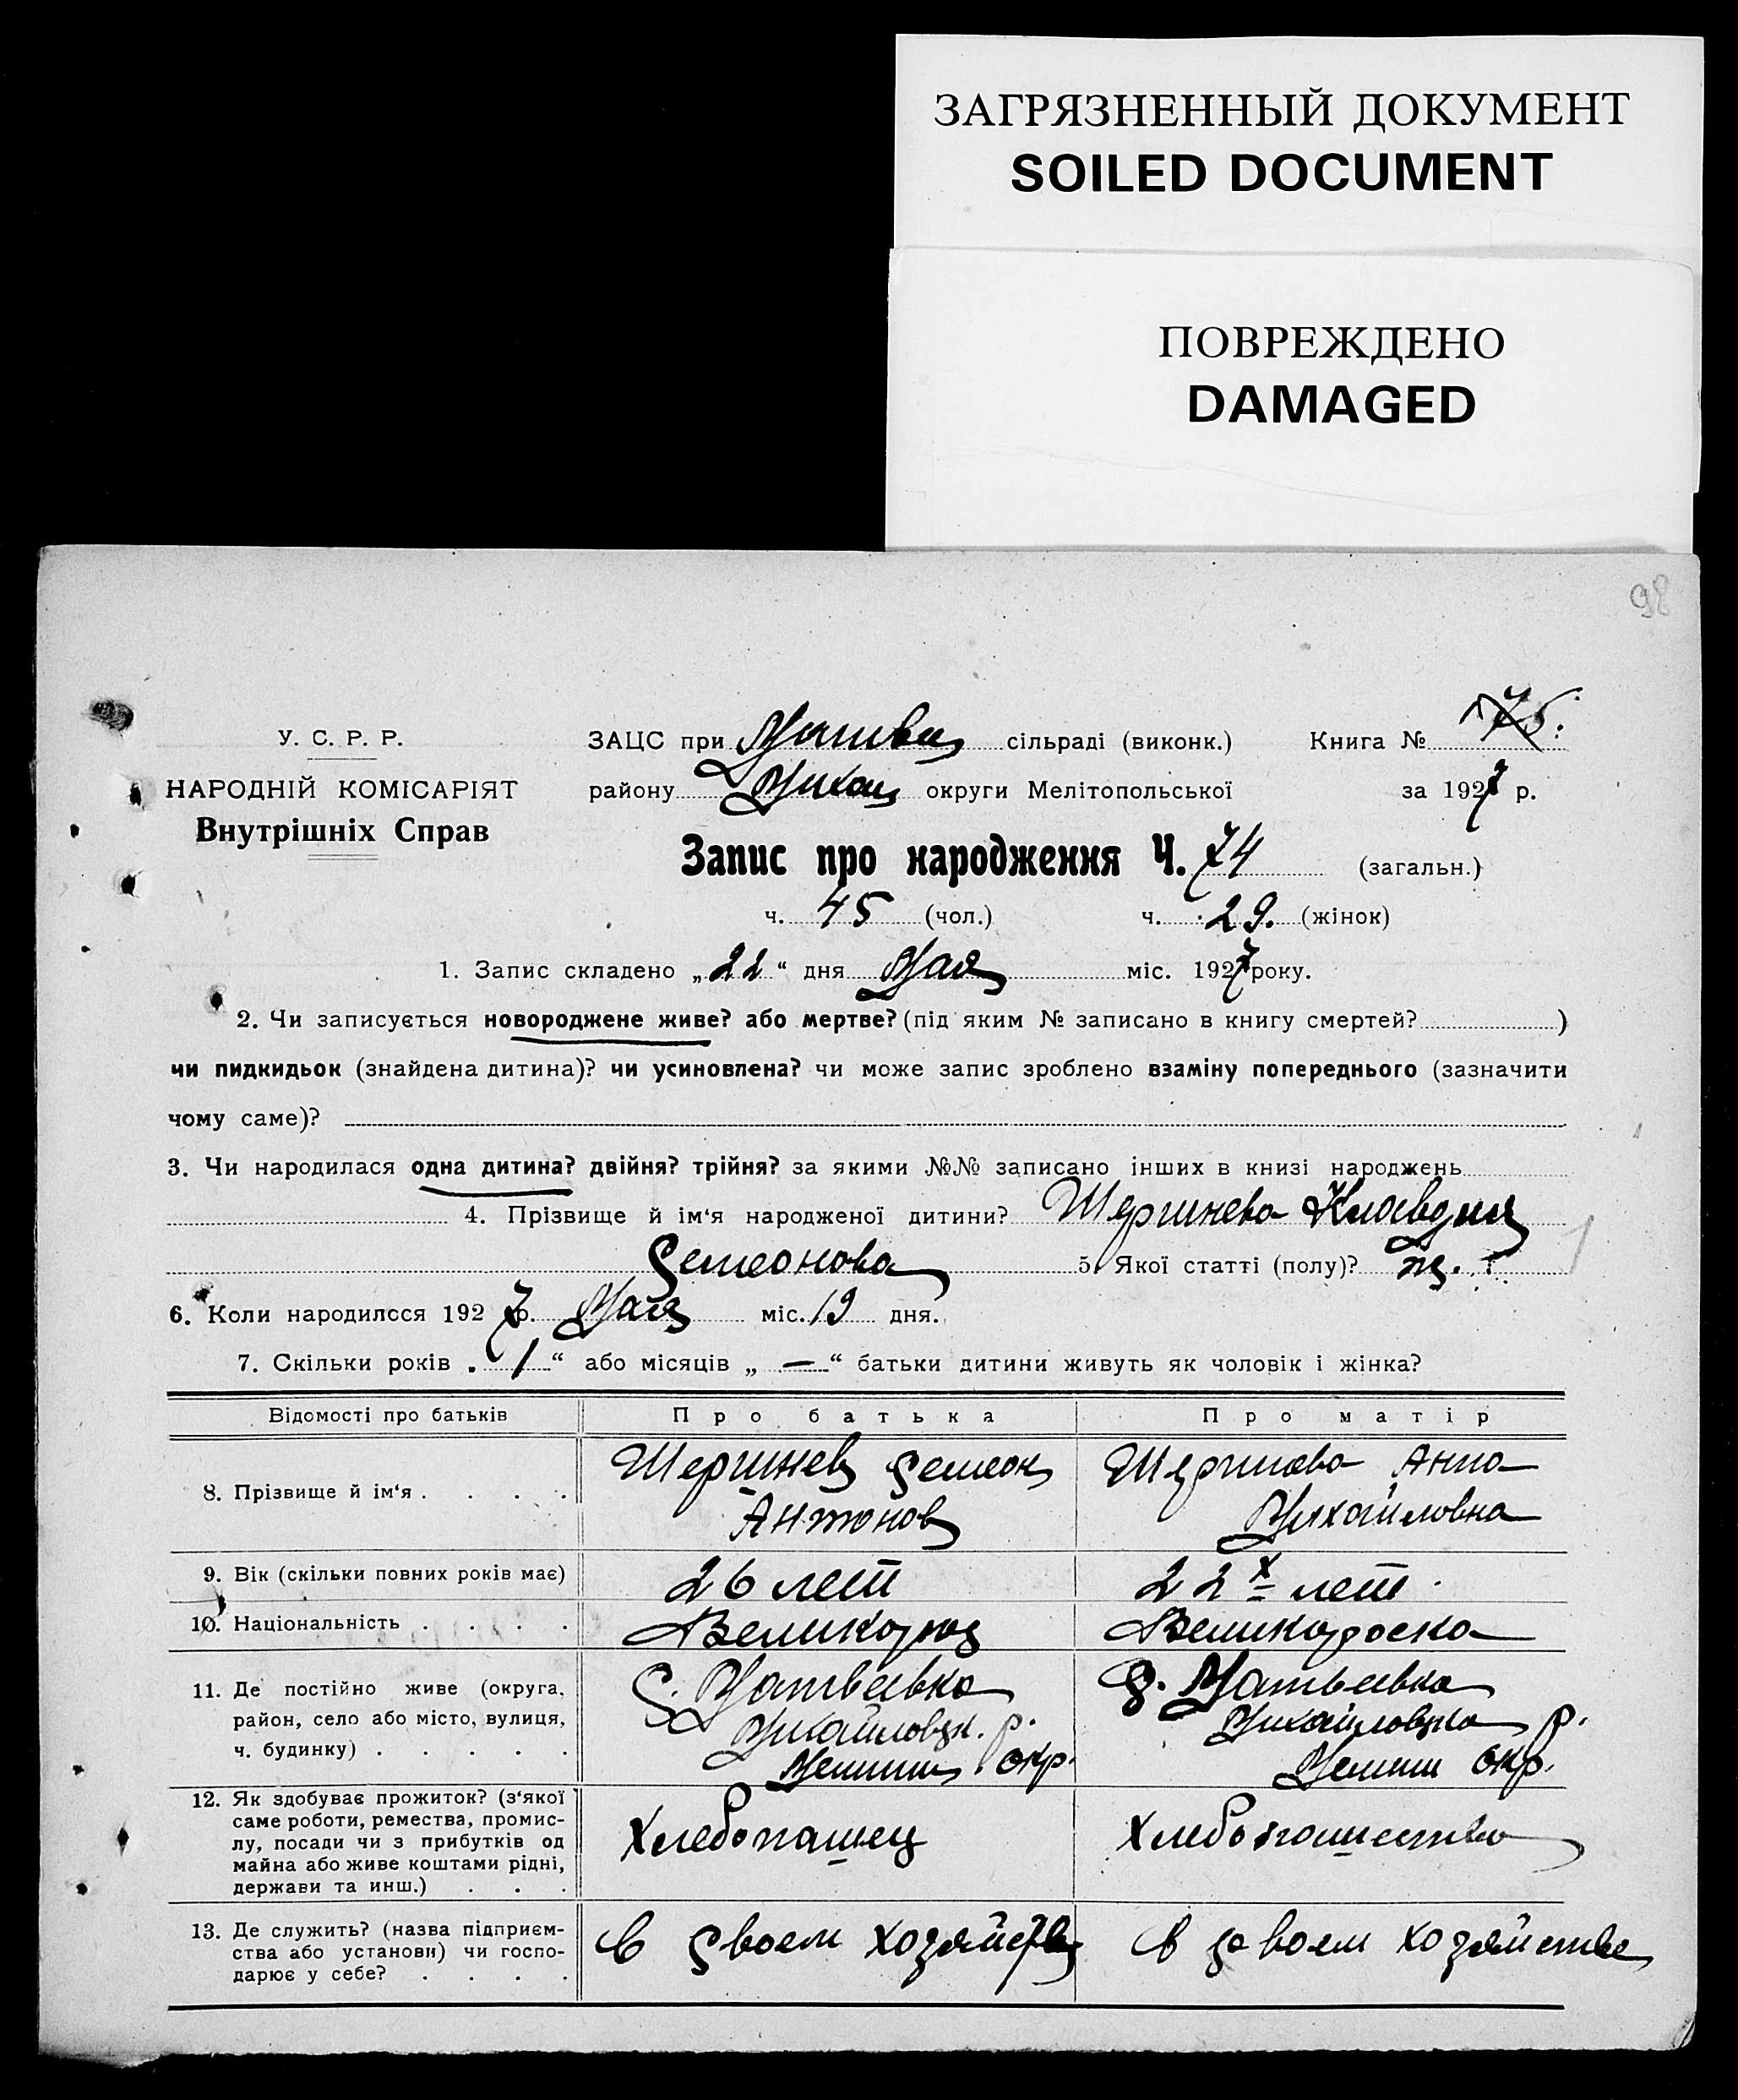 ЗАГРЯЗНЕННЫЙ ДОКУМЕНТ
SOILED DOCUMENT
ПОВРЕЖДЕНО
DAMAGED
98
У. С. Р. Р.
НАРОДНІЙ КОМІСАРІЯТ
Внутрішніх Справ
ЗАЦС при сільраді (виконк.) Книга № 75.
району Михай округи Мелітопольської за 1927 р.
Запис про народження Ч. 74 (загальн.)
ч. 45 (чол.) ч. 29. (жінок)
1. Запис складено „22“ дня Мая міс. 1927 року.
2. Чи записується новороджене живе? або мертве? (під яким № записано в книгу смертей? )
чи пидкидьок (знайдена дитина)? чи усиновлена? чи може запис зроблено взаміну попереднього (зазначити
чому саме)?
3. Чи народилася одна дитина? двійня? трійня? за якими №№ записано інших в книзі народжень
4. Прізвище й ім‘я народженої дитини? Шершнева Клавдия
Семеонова 5. Якої статті (полу)? ж.
6. Коли народилося 1927 р. Мая міс. 19 дня.
7. Скільки років „ 1 “ або місяців „ — “ батьки дитини живуть як чоловік і жінка?
Відомості про батьків Про батька Про матір
8. Прізвище й ім‘я . . . . Шершнев Семеон Антонов Шершнева Анна Михайловна
9. Вік (скільки повних років має) 26 лет 22х лет.
10. Національність . . . . Великорос Великороска
11. Де постійно живе (округа, район, село або місто, вулиця, ч. будинку) . . . . . С. Матвеевка Михайловск. р. окр. С. Матвеевка Михайловска р. окр.
12. Як здобуває прожиток? (з‘якої саме роботи, ремества, промислу, посади чи з прибутків од майна або живе коштами рідні, держави та инш.) . . . Хлебопашец Хлебопашество
13. Де служить? (назва підприємства або установи) чи господарює у себе? . . . . В своем хозяйстве В своем хозяйстве